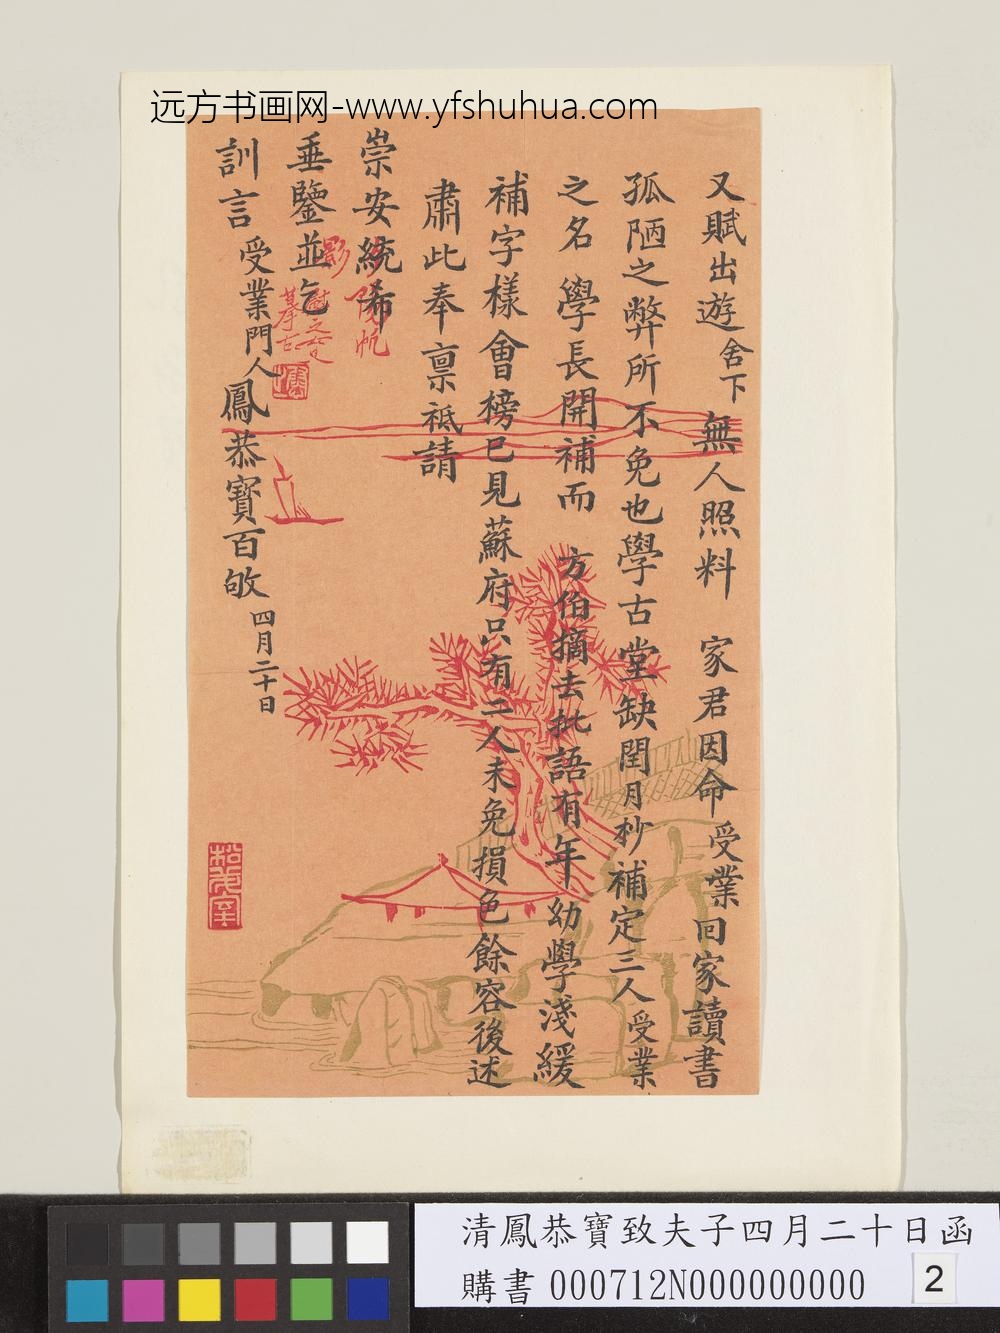 远方书画网-www.yfshuhua.com
又賦出遊舍下無人照料　家君因命受業回家讀書
孤陋之弊所不免也學古堂缺閏月杪補定三人受業
之名　學長開補而　方伯摘去批語有年幼學淺緩
補字樣會榜已見蘇府只有二人未免損色餘容後述
肅此奉稟祗請
崇安統希
垂鑒並乞
訓言受業門人鳳恭寶百敂四月二十日
帆影
摹古
松茂室
清鳳恭寶致夫子四月二十日函
購書 000712N000000000
2